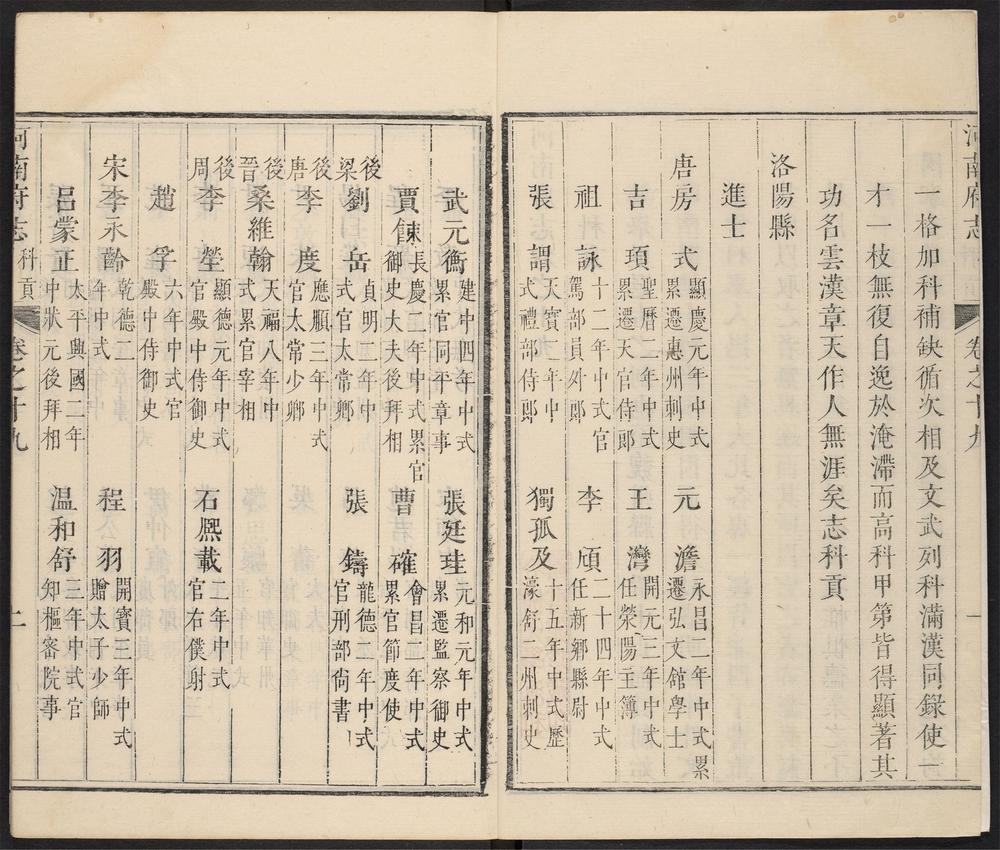 河南府志
卷之十九
一
一格加科補缺循次相及文武列科滿漢同錄使一
才一枝無復自逸於淹滯而高科甲第皆得顯著其
功名雲漢章天作人無涯矣志科貢
洛陽縣
進士
唐房式顯慶元年中式累遷惠州刺史
元澹永昌二年中式累遷弘文館學士
吉頊聖曆二年中式累遷天官侍郎
王灣開元三年中式任滎陽主簿
祖詠十二年中式官駕部員外郎
李頎二十四年中式任新鄉縣尉
張謂天寶二年中式禮部侍郎
獨孤及十五年中式歷濠舒二州刺史
武元衡建中四年中式累官同平章事
張廷珪元和元年中式累遷監察御史
賈餗長慶二年中式累官御史大夫後拜相
曹確會昌二年中式累官節度使
後梁劉岳貞明二年中式官太常卿
張鑄龍德二年中式官刑部尚書
後唐李度應順三年中式官太常少卿
後晉桑維翰天福八年中式累官宰相
後周李瑩顯德元年中式官殿中侍御史
石熙載二年中式官右僕射
趙孚六年中式官殿中侍御史
宋李永齡乾德二年中式
程羽開寶三年中式贈太子少師
呂蒙正太平興國二年中狀元後拜相
温和舒三年中式官知樞密院事
河南府志
科貢
卷之十九